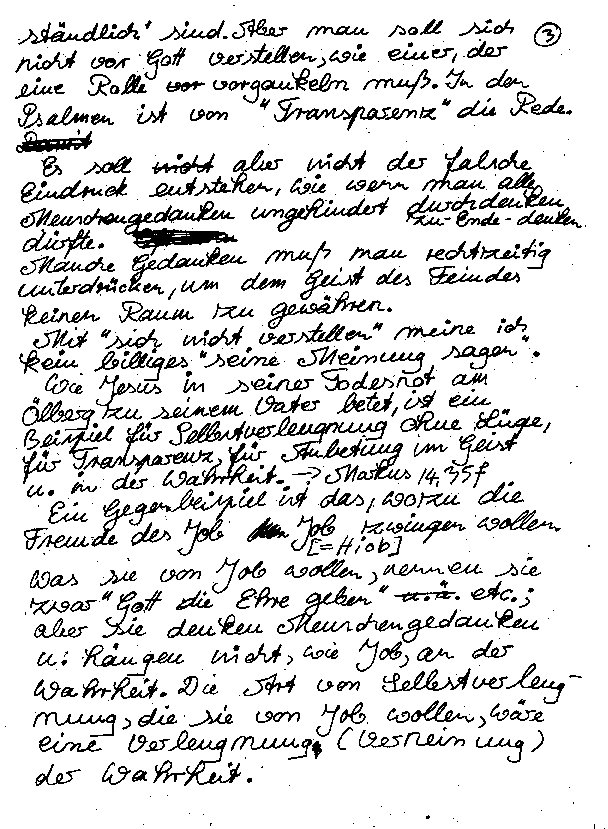 ständlich" sind. Aber man soll sich ③
nicht vor Gott verstellen, wie einer, der
eine Rolle vor vorgaukeln muß. In den
Psalmen ist von "Transparenz" die Rede.
Damit
Es soll nicht aber nicht der falsche
Eindruck entstehen, wie wenn man alle
Menschengedanken ungehindert durchdenken
zu-Ende-denken
dürfte.
Manche Gedanken muß man rechtzeitig
unterdrücken, um dem Geist des Feindes
keinen Raum zu gewähren.
Mit "sich nicht verstellen" meine ich
kein billiges "seine Meinung sagen".
Wie Jesus in seiner Todesnot am
Ölberg zu seinem Vater betet, ist ein
Beispiel für Selbstverleugnung ohne Lüge,
für Transparenz, für Anbetung im Geist
u. in der Wahrheit. → Markus 14,35f
Ein Gegenbeispiel ist das, wozu die
Freunde des Job Job zwingen wollen
[=Hiob]
Was sie von Job wollen, nennen sie
zwar "Gott die Ehre geben" u.ä. etc.;
aber sie denken Menschengedanken
u. hängen nicht, wie Job, an der
Wahrheit. Die Art von Selbstverleug-
nung, die sie von Job wollen, wäre
eine Verleugnung (Verneinung)
der Wahrheit.